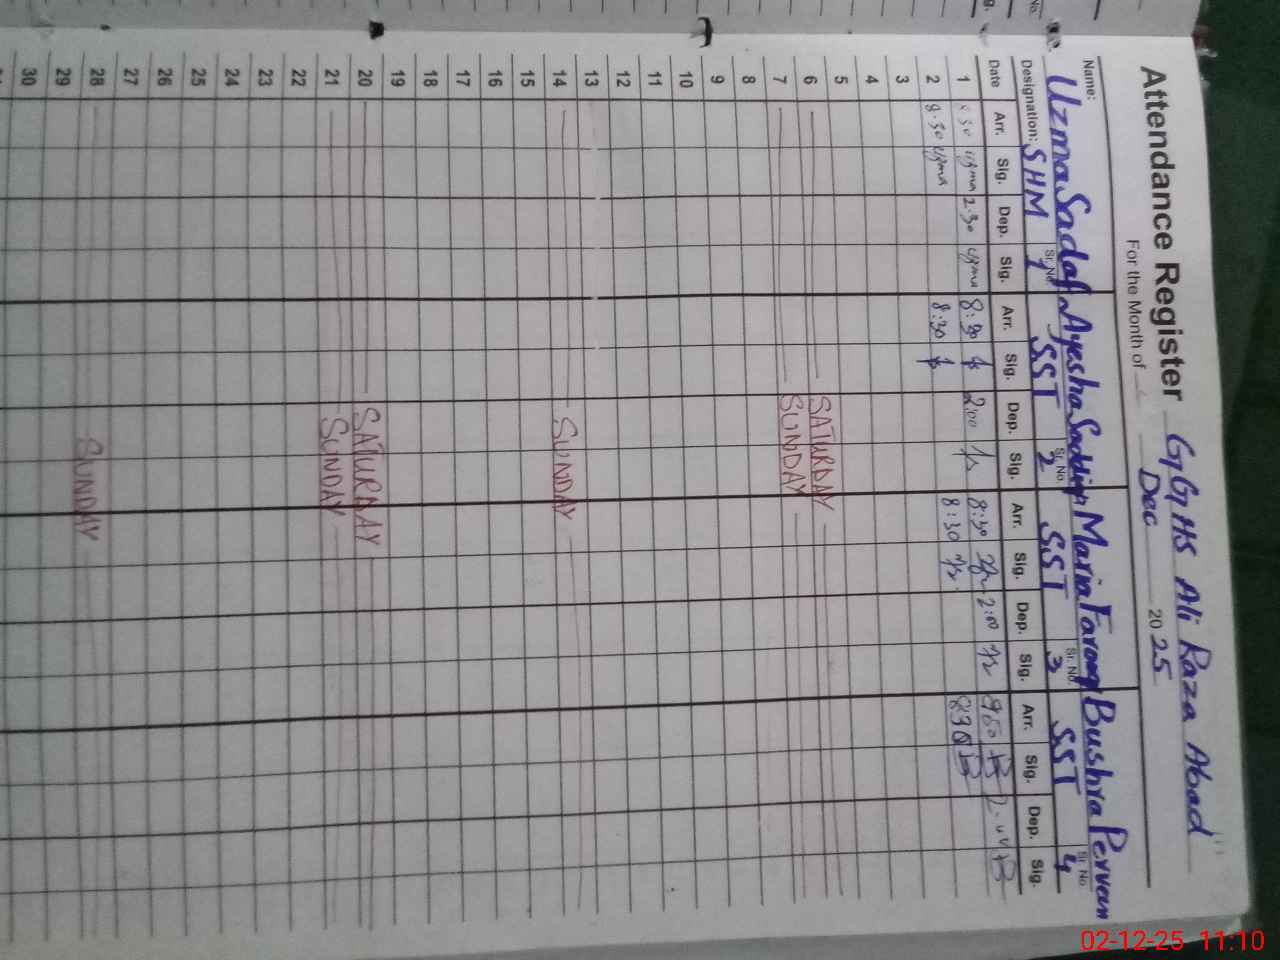 Attendance Register GGHS Ali Raza Abad
For the Month of Dec 2025
Name: Uzma Sadaf Ayesha Saddiqa Maria Farooq Bushra Perveen
Designation: SHM Sr. No. 1 SST Sr. No. 2 SST Sr. No. 3 SST Sr. No. 4
Date Arr. Sig. Dep. Sig. Arr. Sig. Dep. Sig. Arr. Sig. Dep. Sig. Arr. Sig. Dep. Sig.
1 8:30 uzma 2:30 uzma 8:30 2:00 8:30 2:00
2 8:30 uzma 8:30 8:30 830
3
4
5
6 SATURDAY
7 SUNDAY
8
9
10
11
12
13
14 SUNDAY
15
16
17
18
19
20 SATURDAY
21 SUNDAY
22
23
24
25
26
27
28 SUNDAY
29
30
02-12-25 11:10